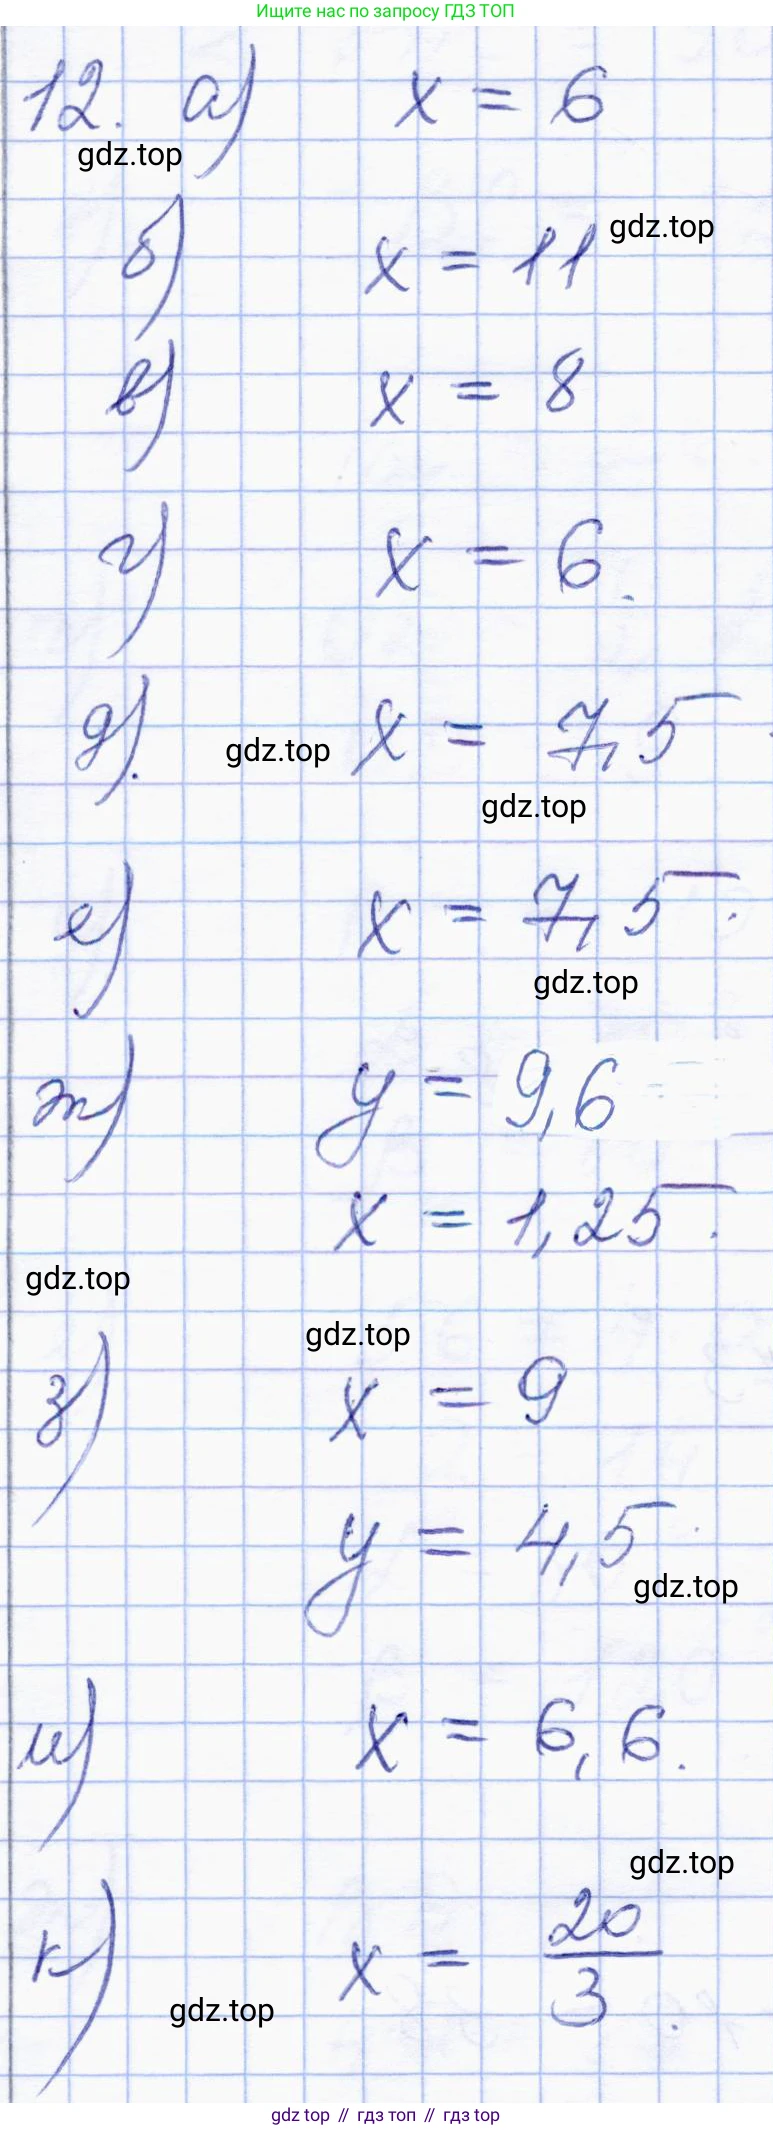 Ищите нас по запросу ГДЗ ТОП
12. а) x = 6
gdz.top
б) x = 11 gdz.top
в) x = 8
г) x = 6.
д). gdz.top x = 7,5
gdz.top
е) x = 7,5.
gdz.top
ж) y = 9,6
x = 1,25.
gdz.top
gdz.top
з) x = 9
y = 4,5
gdz.top
и) x = 6,6.
gdz.top
к) x = 20/3.
gdz.top
gdz top // гдз топ // гдз top